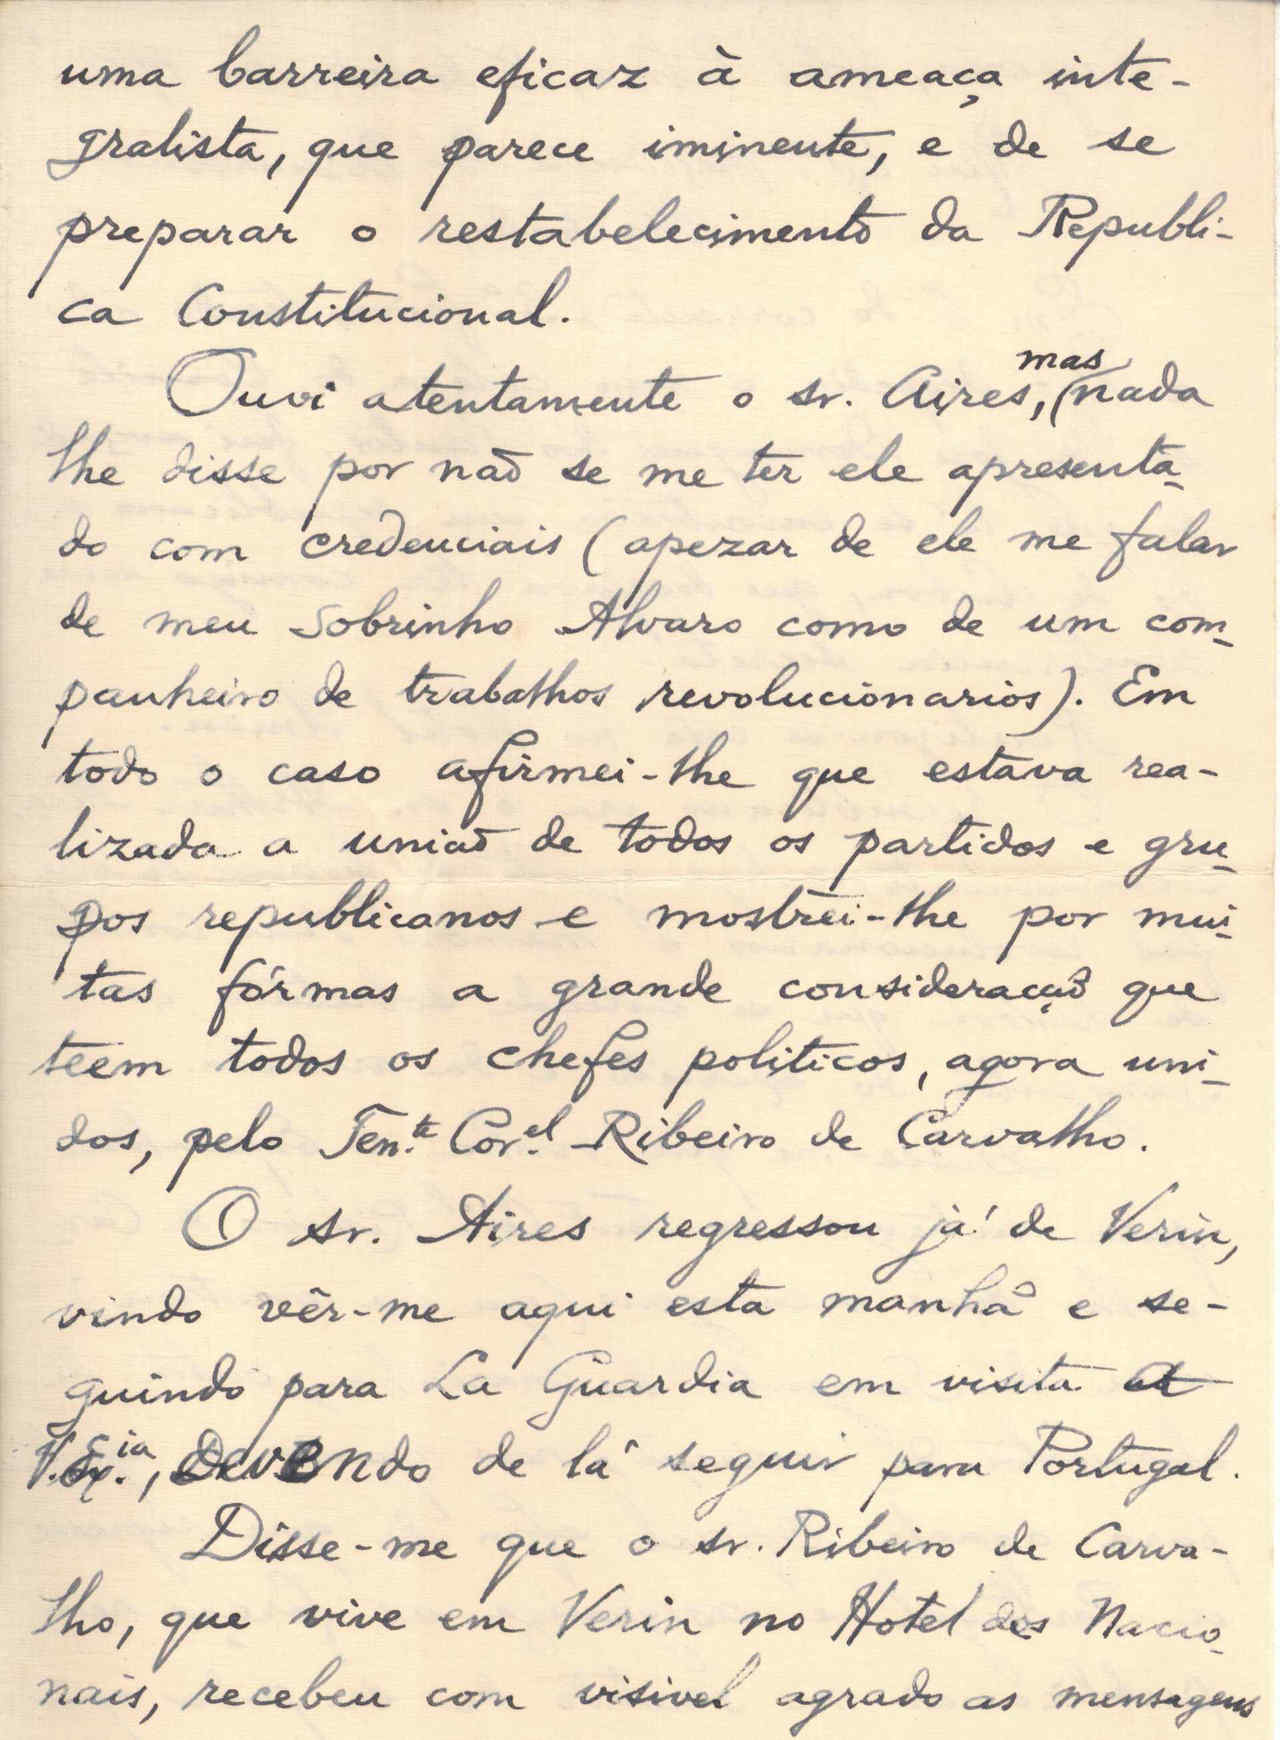 uma barreira eficaz à ameaça inte-
gralista, que parece iminente, e de se
preparar o restabelecimento da Republi-
ca Constitucional.
Ouvi atentamente o sr. Aires, mas nada
lhe disse por não se me ter ele apresenta-
do com credenciais (apezar de ele me falar
de meu sobrinho Alvaro como de um com-
panheiro de trabalhos revolucionarios). Em
todo o caso afirmei-lhe que estava rea-
lizada a união de todos os partidos e gru-
pos republicanos e mostrei-lhe por mui-
tas fórmas a grande consideração que
teem todos os chefes politicos, agora uni-
dos, pelo Ten.te Cor.el Ribeiro de Carvalho.
O sr. Aires regressou já de Verin,
vindo vêr-me aqui esta manhã e se-
guindo para La Guardia em visita a
V. Ex.ia, devendo de lá seguir para Portugal.
Disse-me que o sr. Ribeiro de Carva-
lho, que vive em Verin no Hotel dos Nacio-
nais, recebeu com visivel agrado as mensagens